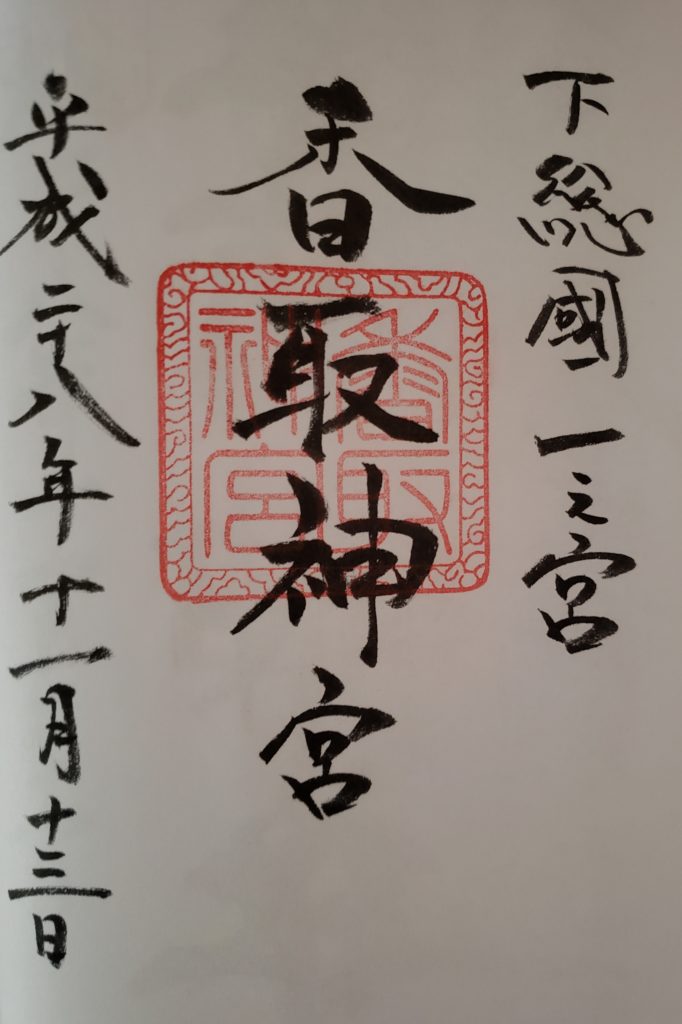 下総國一之宮
香取神宮
香取神宮
平成二十八年十一月十三日